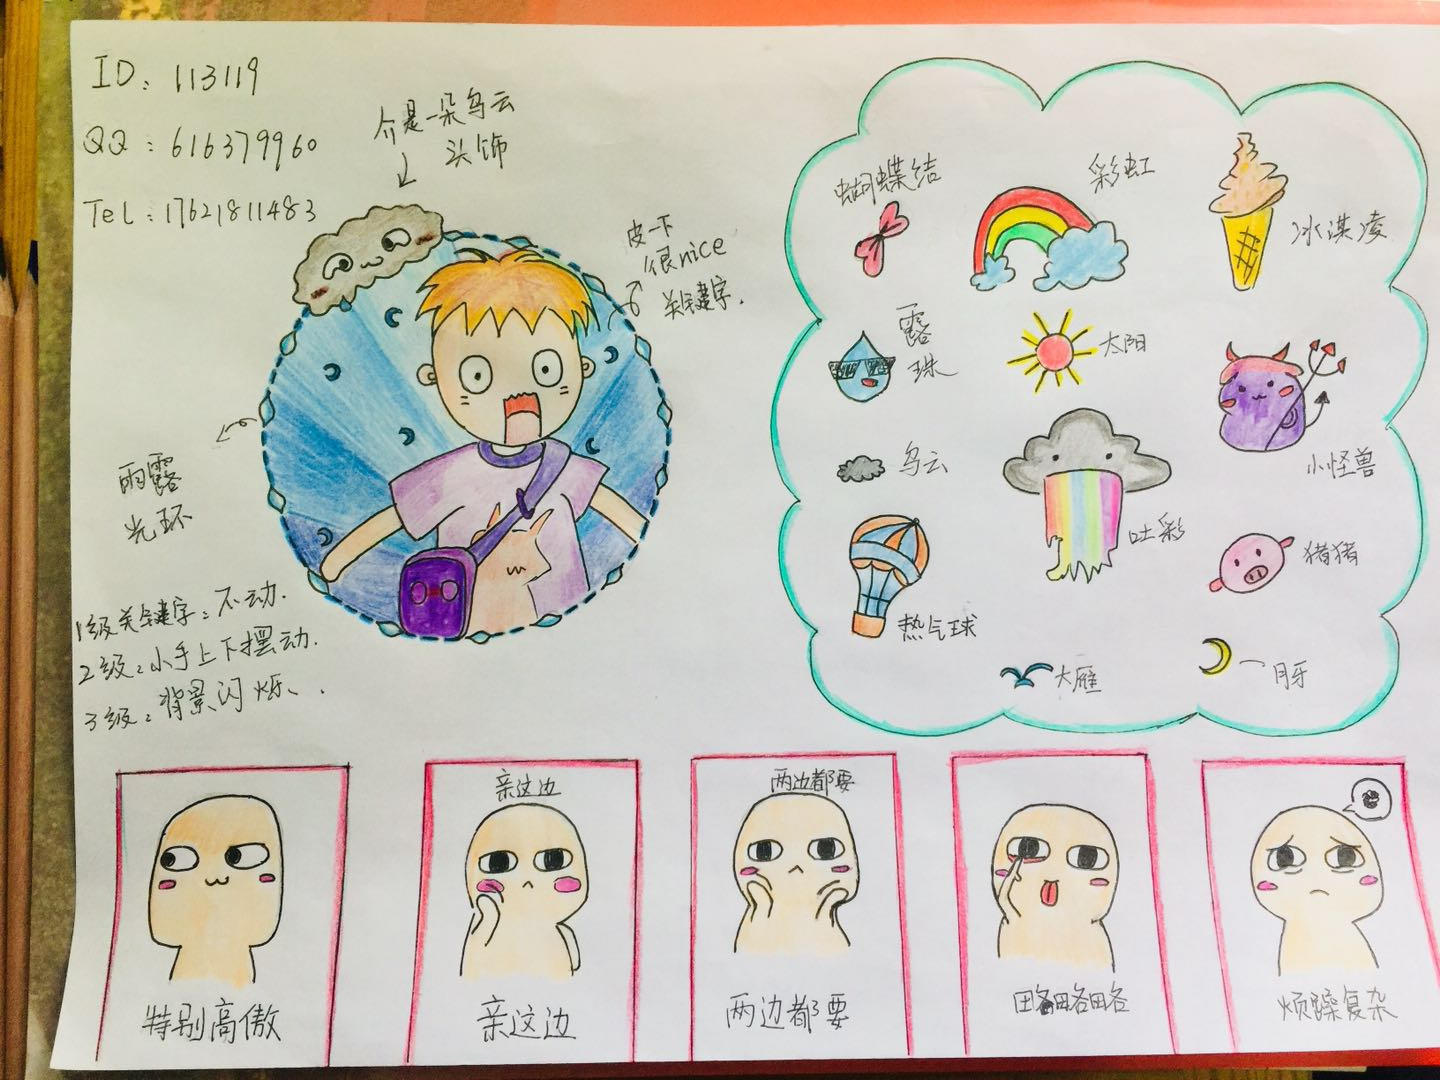 ID：113119
QQ：616379960
Tel：17621811483
介是一朵乌云
头饰
皮一下
很nice
关键字.
雨露
光环
1级关键字：不动.
2级：小手上下摆动.
3级：背景闪烁、.
蝴蝶结
彩虹
冰淇凌
露
珠
太阳
乌云
小怪兽
吐彩
猪猪
热气球
大雁
月牙
亲这边
两边都要
特别高傲
亲这边
两边都要
略略略
烦躁复杂